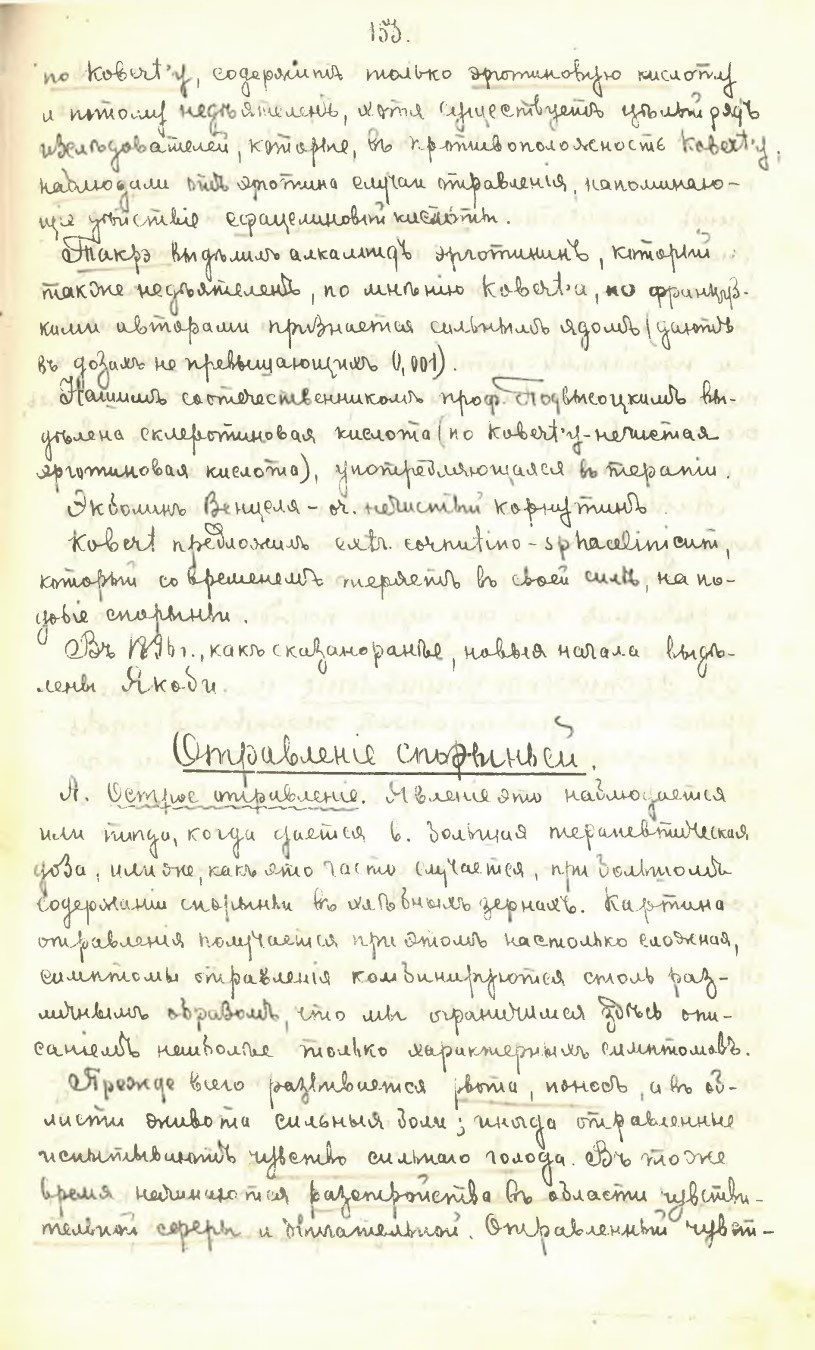 153.
по Kobert'у, содержитъ только эрготиновую кислоту
и потому недѣятеленъ, хотя существуетъ цѣлый рядъ
изслѣдователей, которые, въ противоположность Kobert'у,
наблюдали отъ эрготина случаи отравленія, напоминаю-
щіе дѣйствіе сфацелиновой кислоты.
Такрэ выдѣлилъ алкалоидъ эрготининъ, который
также недѣятеленъ, по мнѣнію Kobert'а, но француз-
кими авторами признается сильнымъ ядомъ (даютъ
въ дозахъ не превышающихъ 0,001).
Нашимъ соотечественникомъ проф. Подвысоцкимъ вы-
дѣлена склеротиновая кислота (по Kobert'у - нечистая
эрготиновая кислота), употребляющаяся въ терапіи.
Экболинъ Венцеля - оч. нечистый корнутинъ
Kobert предложилъ extr. cornutino - sphacelinicum,
который со временемъ теряетъ въ своей силѣ, на по-
добіе спорыньи.
Въ 1896 г., какъ сказано ранѣе, новыя начала выдѣ-
лены Якоби.
Отравленіе спорыньей.
А. Острое отравленіе. Явленіе это наблюдается
или тогда, когда дается б. большая терапевтическая
доза, или же, какъ это часто случается, при большомъ
содержаніи спорыньи въ хлѣбныхъ зернахъ. Картина
отравленія получается при этомъ настолько сложная,
симптомы отравленія комбинируются столь раз-
личнымъ образомъ, что мы ограничимся здѣсь опи-
саніемъ наиболѣе только характерныхъ симптомовъ.
Прежде всего развивается рвота, поносъ, а въ об-
ласти живота сильныя боли; иногда отравленные
испытываютъ чувство сильнаго голода. Въ тоже
время начинаются разстройства въ области чувстви-
тельной сферы и двигательной. Отравленный чувст-